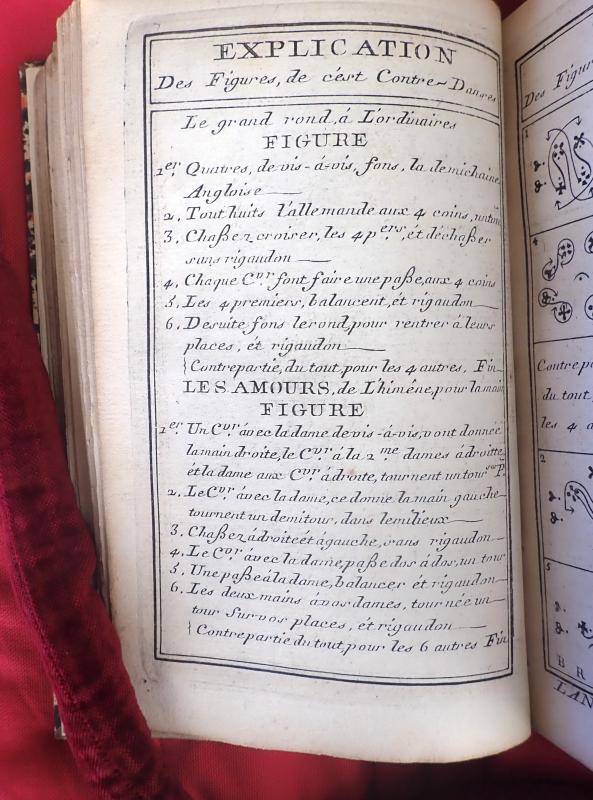 EXPLICATION
Des Figures, de c'ést Contre~Danses
Le grand rond, á L'ordinaires
FIGURE
1er. Quatres, de vis-á-vis, fons, la demichaine
Angloise
2, Touthuits l'allemande aux 4 coins, untour
3, Chaßez croiser, les 4 pers, ét déchaßer
sans rigaudon
4, Chaque Cvr font faire une paße, aux 4 coins
5, Les 4 premiers, balancent, ét rigaudon
6, Desuite fons lerond, pour rentrer á leurs
places, ét rigaudon
Contrepartie, du tout, pour les 4 autres, Fin
LES AMOURS, de L'himêne, pour la main
FIGURE
1er. Un Cvr ávec la dame de vis-á-vis, vont donneé
la main droite, le Cvr á la 2me dames á droitte
ét la dame aux Cvr á droite, tournent un tour P.
2, Le Cvr ávec la dame, ce donne la main gauche
tournent un demitour, dans lemilieux
3, Chaßez ádroiteét ágauche, sans rigaudon
4, Le Cvr ávec la dame, paße dos ádos, un tour
5, Une paßeála dame, balancer ét rigaudon
6, Les deux mains ávos dames, tour née un
tour Sur vos places, ét rigaudon
Contrepartie du tout, pour les 6 autres Fin
Des Figur
1
4
Contrepa
du tout
les 4 a
2
5
B R
LAN